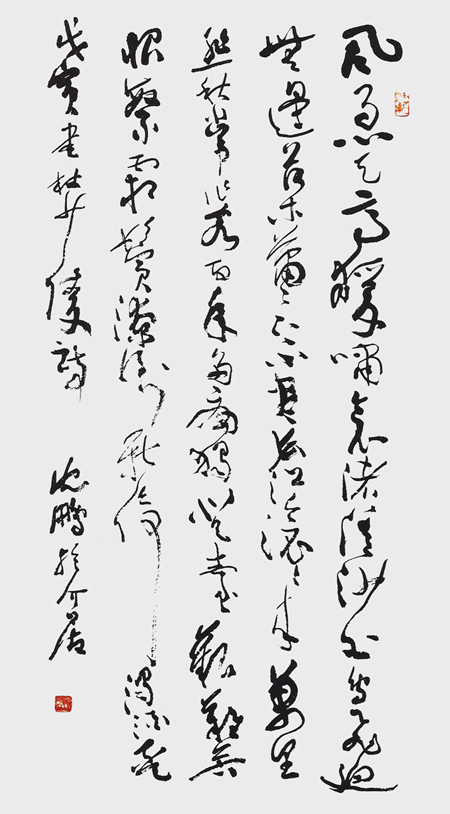 風急天高猿嘯哀渚清沙白鳥飛迴
無邊落木蕭蕭下不盡長江滾滾來萬里
悲秋常作客百年多病獨登臺艱難苦
恨繁霜鬢潦倒新停濁酒杯
戊寅書杜少陵詩 沈鵬於介居